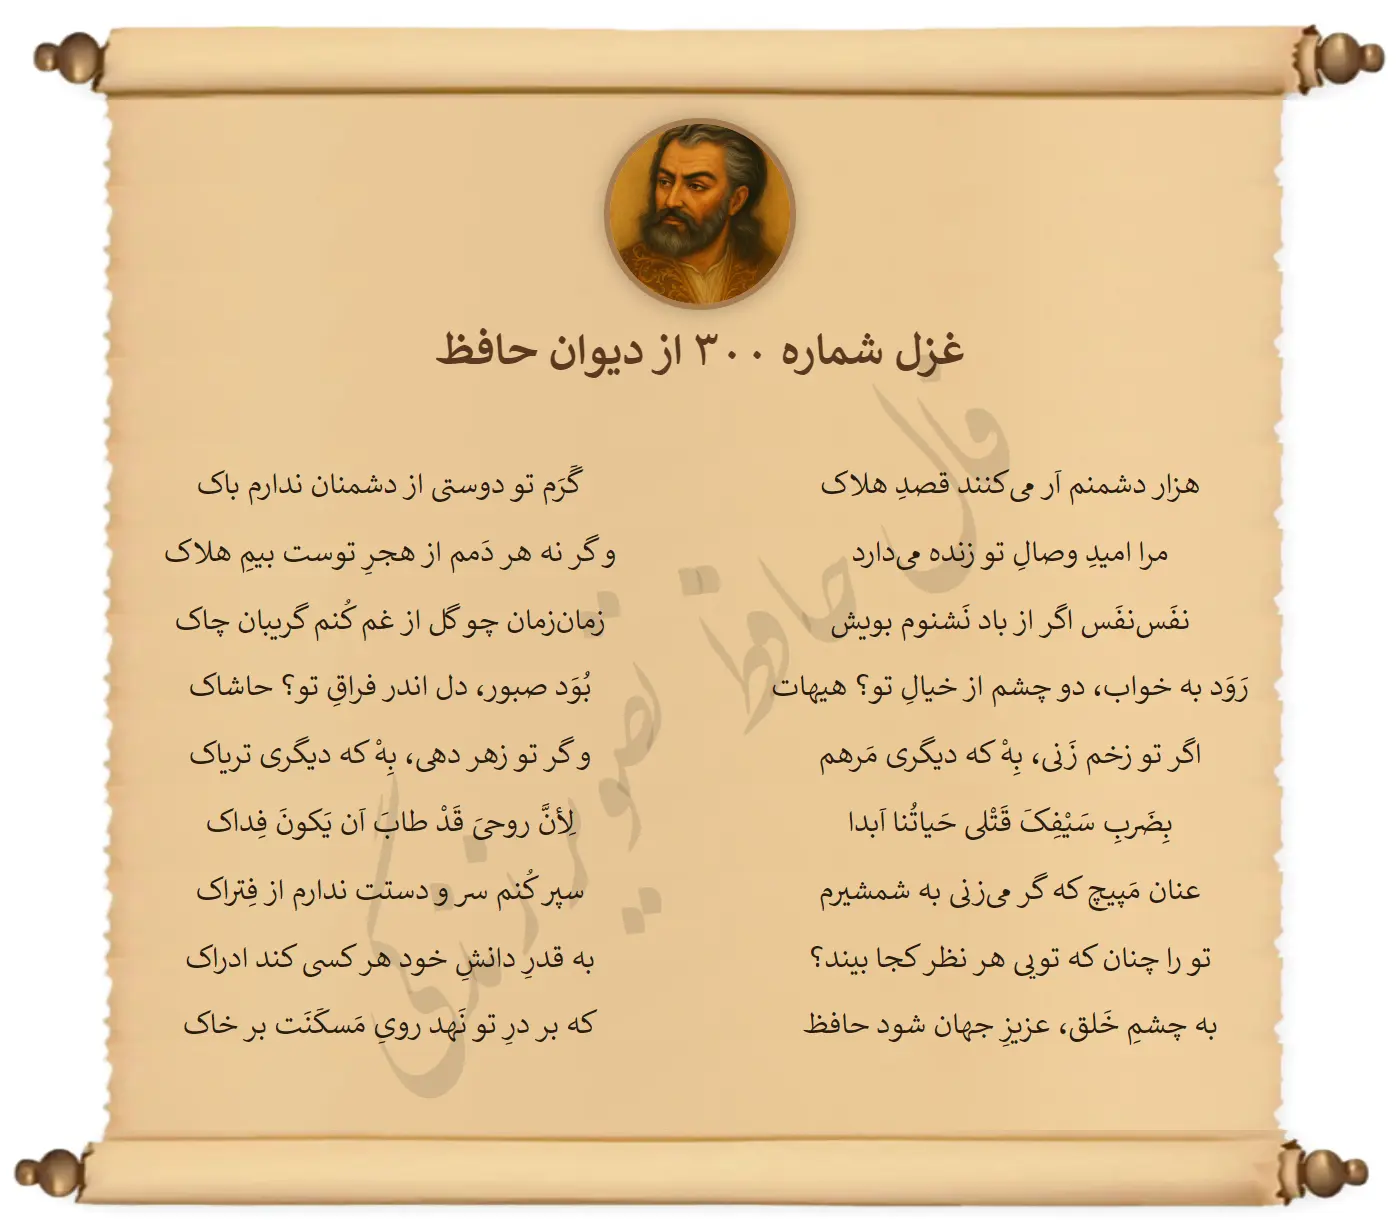 غزل شماره ۳۰۰ از دیوان حافظ
هزار دشمنم اَر می‌کنند قصدِ هلاک
گَرَم تو دوستی از دشمنان ندارم باک
مرا امیدِ وصالِ تو زنده می‌دارد
و گر نه هر دَمم از هجرِ توست بیمِ هلاک
نفَس‌نفَس اگر از باد نَشنوم بویش
زمان‌زمان چو گل از غم کُنم گریبان چاک
رَوَد به خواب، دو چشم از خیالِ تو؟ هیهات
بُوَد صبور، دل اندر فراقِ تو؟ حاشاک
اگر تو زخم زَنی، بِهْ که دیگری مَرهم
و گر تو زهر دهی، بِهْ که دیگری تریاک
بِضَربِ سَیْفِکَ قَتْلی حَیاتُنا اَبدا
لِأنَّ روحیَ قَدْ طابَ اَن یَکونَ فِداک
عنان مَپیچ که گر می‌زنی به شمشیرم
سپر کُنم سر و دستت ندارم از فِتراک
تو را چنان که تویی هر نظر کجا بیند؟
به قدرِ دانشِ خود هر کسی کند ادراک
به چشمِ خَلق، عزیزِ جهان شود حافظ
که بر درِ تو نَهد رویِ مَسکَنَت بر خاک
فال حافظ تصویر زندگی